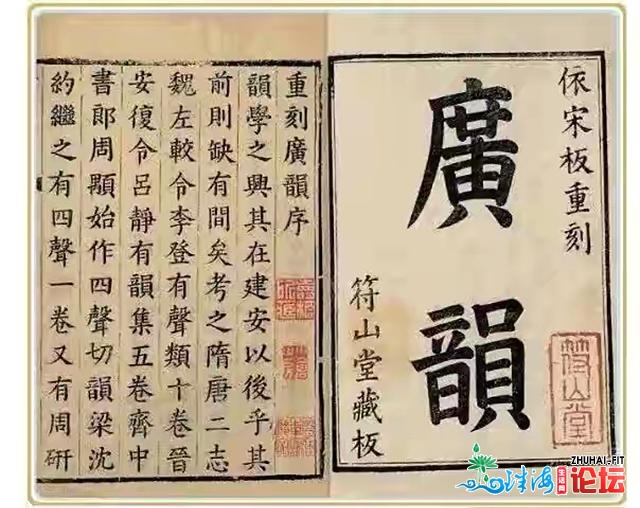 依宋板重刻
廣韻
符山堂藏板
符山堂
重刻廣韻序
韻學之興其在建安以後乎其
前則缺有間矣考之隋唐二志
魏左較令李登有聲類十卷晉
安復令呂靜有韻集五卷齊中
書郎周顒始作四聲切韻梁沈
約繼之有四聲一卷又有周研
ZHUHAI·FIT
珠海
生活网
论坛